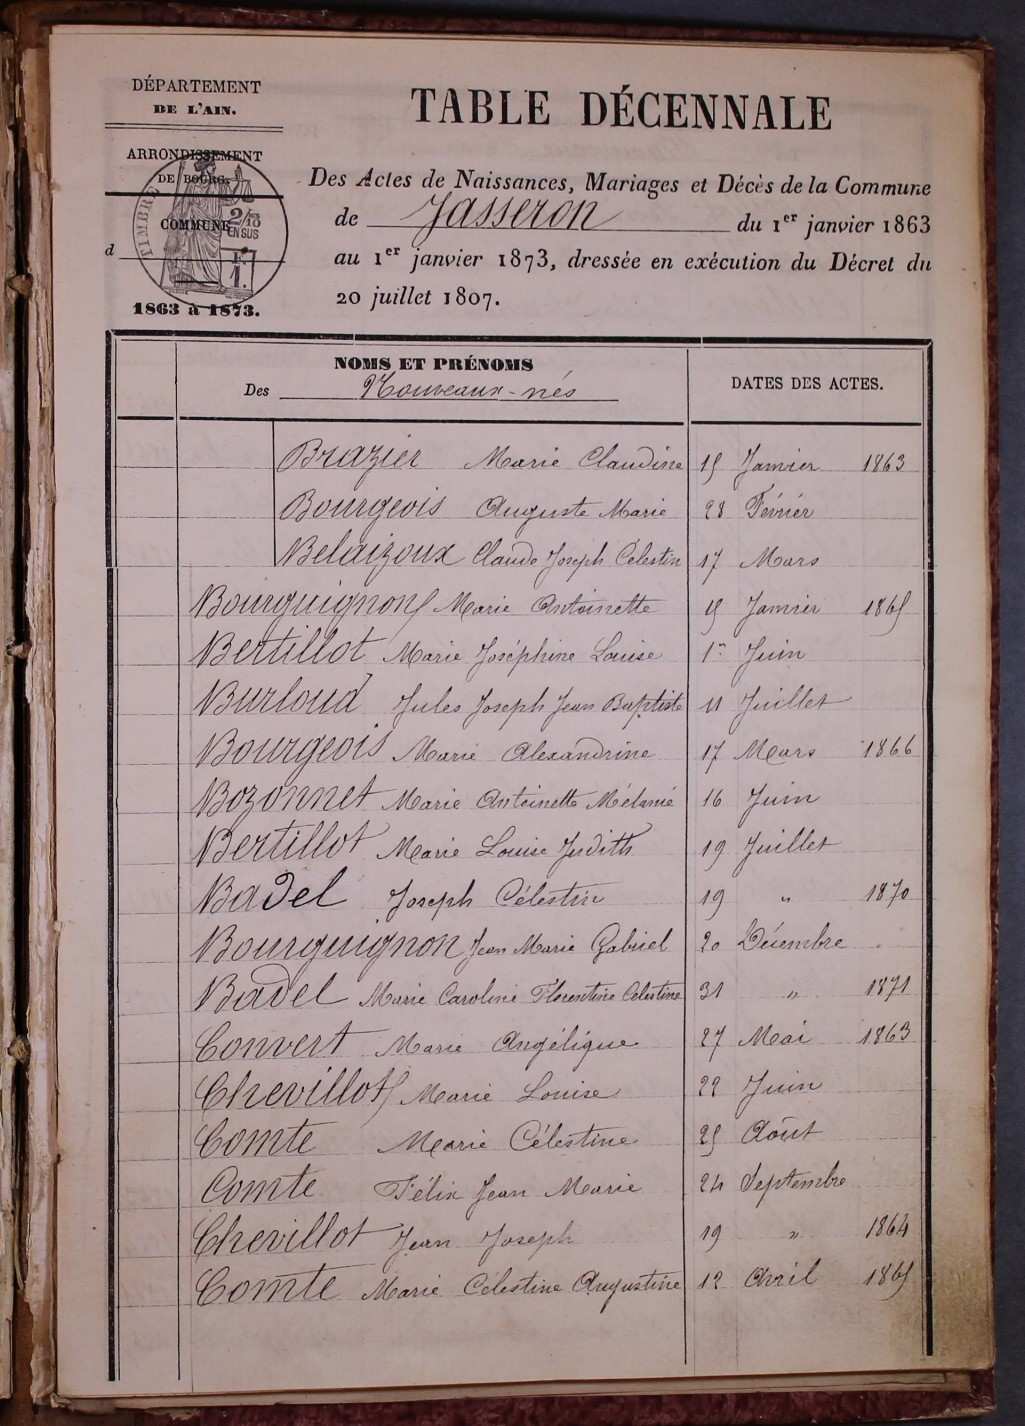 DÉPARTEMENT
DE L'AIN.
ARRONDISSEMENT
DE BOURG.
COMMUNE
d
TIMBRE
2/10
EN SUS
1F
1863 à 1873.
TABLE DÉCENNALE
Des Actes de Naissances, Mariages et Décès de la Commune
de Jasseron du 1er janvier 1863
au 1er janvier 1873, dressée en exécution du Décret du
20 juillet 1807.
NOMS ET PRÉNOMS
Des Nouveaux-nés
DATES DES ACTES.
Brazier Marie Claudine 15 Janvier 1863
Bourgeois Auguste Marie 28 Février
Belaizoux Claude Joseph Célestin 17 Mars
Bourguignon Marie Antoinette 15 Janvier 1865
Bertillot Marie Joséphine Louise 1er Juin
Burloud Jules Joseph Jean Baptiste 11 Juillet
Bourgeois Marie Alexandrine 17 Mars 1866
Bozonnet Marie Antoinette Mélanie 16 Juin
Bertillot Marie Louise Judith 19 Juillet
Badel Joseph Célestin 19 " 1870
Bourguignon Jean Marie Gabriel 20 Décembre
Badel Marie Caroline Florentine Célestine 31 " 1871
Convert Marie Angélique 27 Mai 1863
Chevillot Marie Louise 22 Juin
Comte Marie Célestine 25 Août
Comte Félix Jean Marie 24 Septembre
Chevillot Jean Joseph 19 " 1864
Comte Marie Célestine Augustine 12 Avril 1865